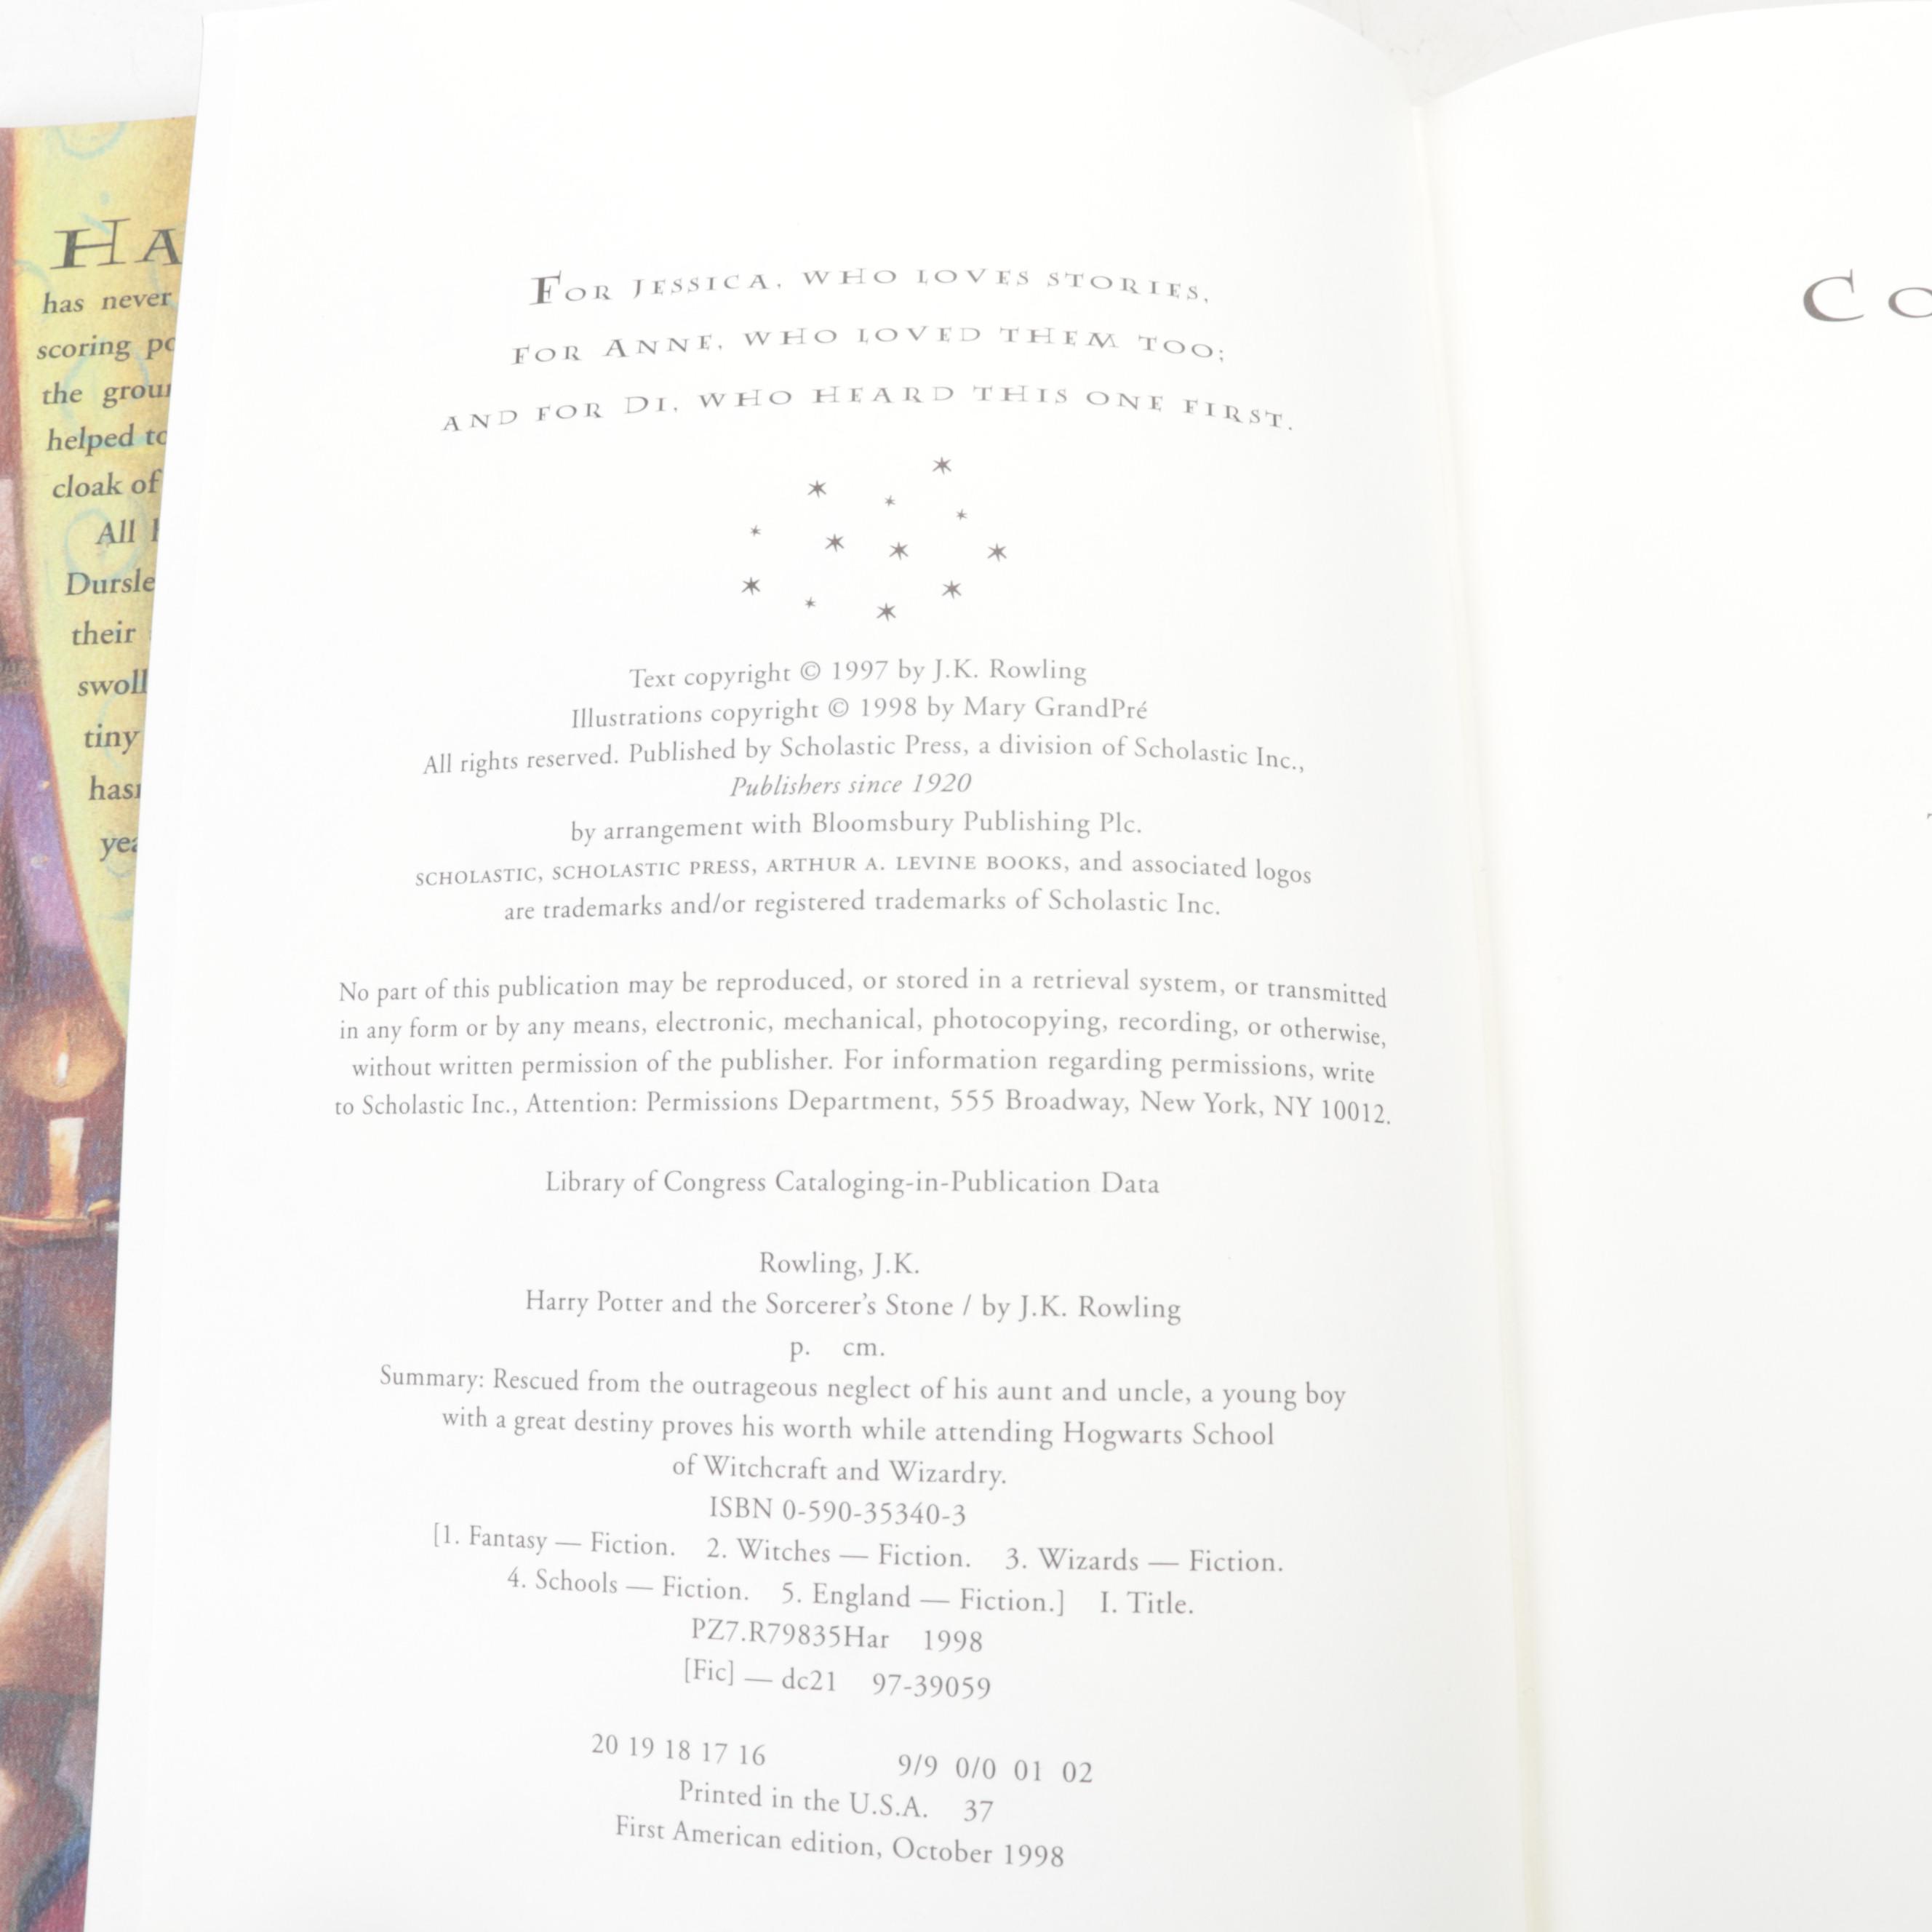 HA
has never
scoring
the
helped
cloak of
All
their
tiny
FOR JESSICA, WHO LOVES STORIES,
FOR ANNE, WHO LOVED THEM TOO;
AND FOR DI, WHO HEARD THIS ONE FIRST.
Text copyright © 1997 by J.K. Rowling
Illustrations copyright © 1998 by Mary GrandPré
All rights reserved. Published by Scholastic Press, a division of Scholastic Inc.,
Publishers since 1920
by arrangement with Bloomsbury Publishing Plc.
SCHOLASTIC, SCHOLASTIC PRESS, ARTHUR A. LEVINE BOOKS, and associated logos
are trademarks and/or registered trademarks of Scholastic Inc.
No part of this publication may be reproduced, or stored in a retrieval system, or transmitted
in any form or by any means, electronic, mechanical, photocopying, recording, or otherwise,
without written permission of the publisher. For information regarding permissions, write
to Scholastic Inc., Attention: Permissions Department, 555 Broadway, New York, NY 10012.
Library of Congress Cataloging-in-Publication Data
Rowling, J.K.
Harry Potter and the Sorcerer's Stone / by J.K. Rowling
p. cm.
Summary: Rescued from the outrageous neglect of his aunt and uncle, a young boy
with a great destiny proves his worth while attending Hogwarts School
of Witchcraft and Wizardry.
ISBN 0-590-35340-3
[1. Fantasy — Fiction. 2. Witches — Fiction. 3. Wizards — Fiction.
4. Schools — Fiction. 5. England — Fiction.] I. Title.
PZ7.R79835Har 1998
[Fic] — dc21 97-39059
20 19 18 17 16 9/9 0/0 01 02
Printed in the U.S.A. 37
First American edition, October 1998
Co